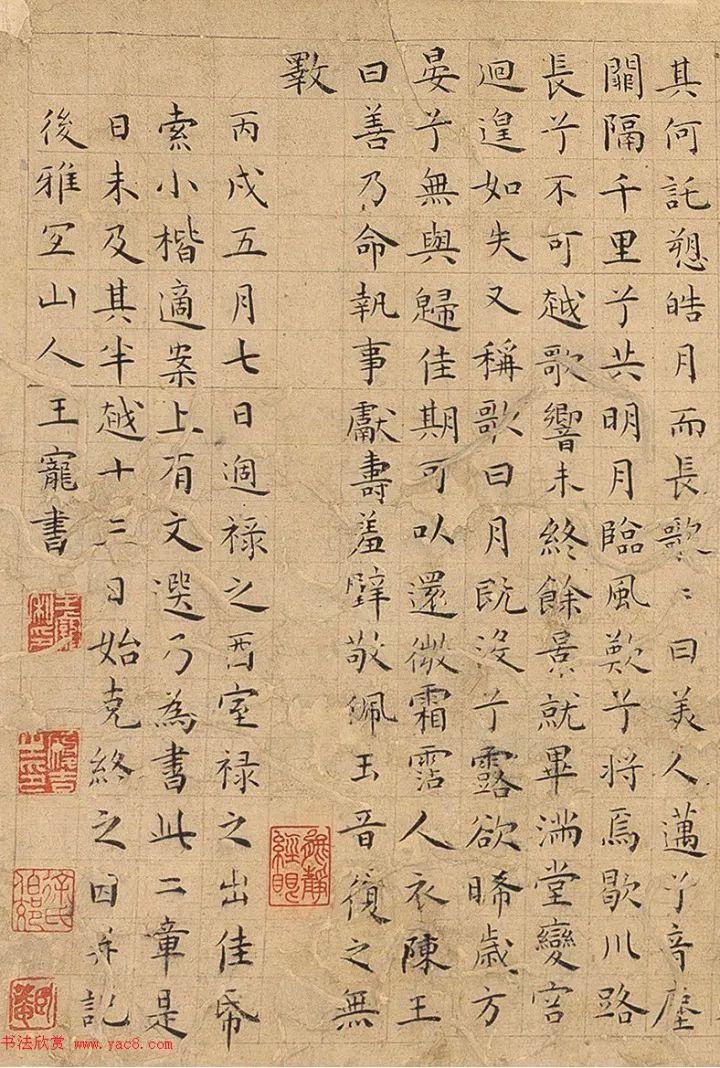 其何託愬皓月而長歌〻曰美人邁兮音塵
闕隔千里兮共明月臨風歎兮將焉歇川路
長兮不可越歌響未終餘景就畢滿堂變容
迴遑如失又稱歌曰月既沒兮露欲晞歲方
晏兮無與歸佳期可以還微霜霑人衣陳王
曰善乃命執事獻壽羞璧敬佩玉音復之無
斁
丙戌五月七日過祿之西室祿之出佳帋
索小楷適案上有文選乃為書此二章是
日未及其半越十三日始克終之因并記
後雅宜山人王寵書
徐氏
書法欣赏 www.yac8.com